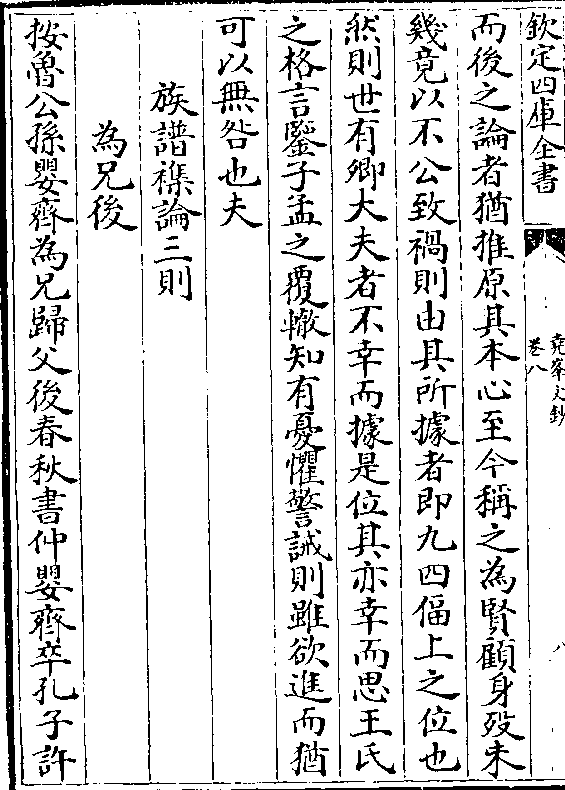 欽定四庫全書
堯峯文鈔
卷八
八
而後之論者猶推原其本心至今稱之為賢顧身殁未
幾竟以不公致禍則由其所據者即九四偪上之位也
然則世有卿大夫者不幸而據是位其亦幸而思王氏
之格言鑒子孟之覆轍知有憂懼警誡則雖欲進而猶
可以無咎也夫
族譜襍論三則
為兄後
按魯公孫嬰齊為兄歸父後春秋書仲嬰齊卒孔子許